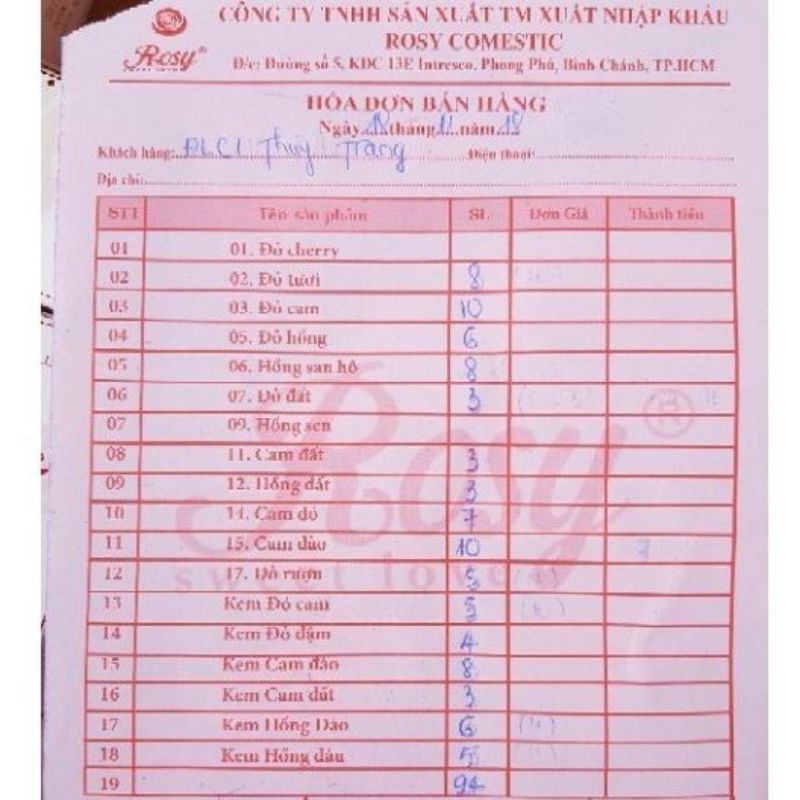 CÔNG TY TNHH SẢN XUẤT TM XUẤT NHẬP KHẨU
Rosy®
ROSY COMESTIC
Đ/c: Đường số 5, KDC 13E Intresco, Phong Phú, Bình Chánh, TP.HCM
HÓA ĐƠN BÁN HÀNG
Ngày 18 tháng 11 năm 18
Khách hàng: ĐLC1 Thùy Trang Điện thoại:
Địa chỉ:
STT Tên sản phẩm SL Đơn Giá Thành tiền
01 01. Đỏ cherry
02 02. Đỏ tươi 8
03 03. Đỏ cam 10
04 05. Đỏ hồng 6
05 06. Hồng san hô 8
06 07. Đỏ đất 3
07 09. Hồng sen
08 11. Cam đất 3
09 12. Hồng đất 3
10 14. Cam đỏ 7
11 15. Cam đào 10
12 17. Đỏ rượu 5
13 Kem Đỏ cam 5
14 Kem Đỏ đậm 4
15 Kem Cam đào 8
16 Kem Cam đất 3
17 Kem Hồng Đào 6
18 Kem Hồng dâu 5
19 94
Rosy®
sweet love